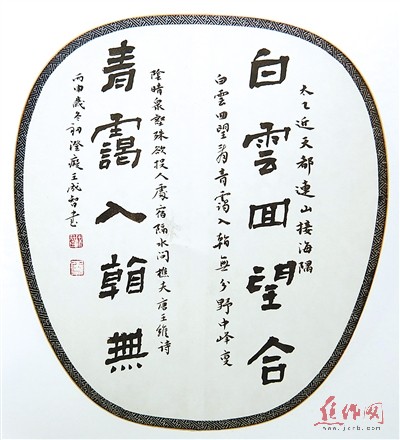 白雲回望合
青靄入看無
太乙近天都連山接海隅
白雲回望合青靄入看無分野中峰變
陰晴衆壑殊欲投人處宿隔水問樵夫唐王維詩
丙申歲冬初澄王成台書
焦作网
www.jzrb.com